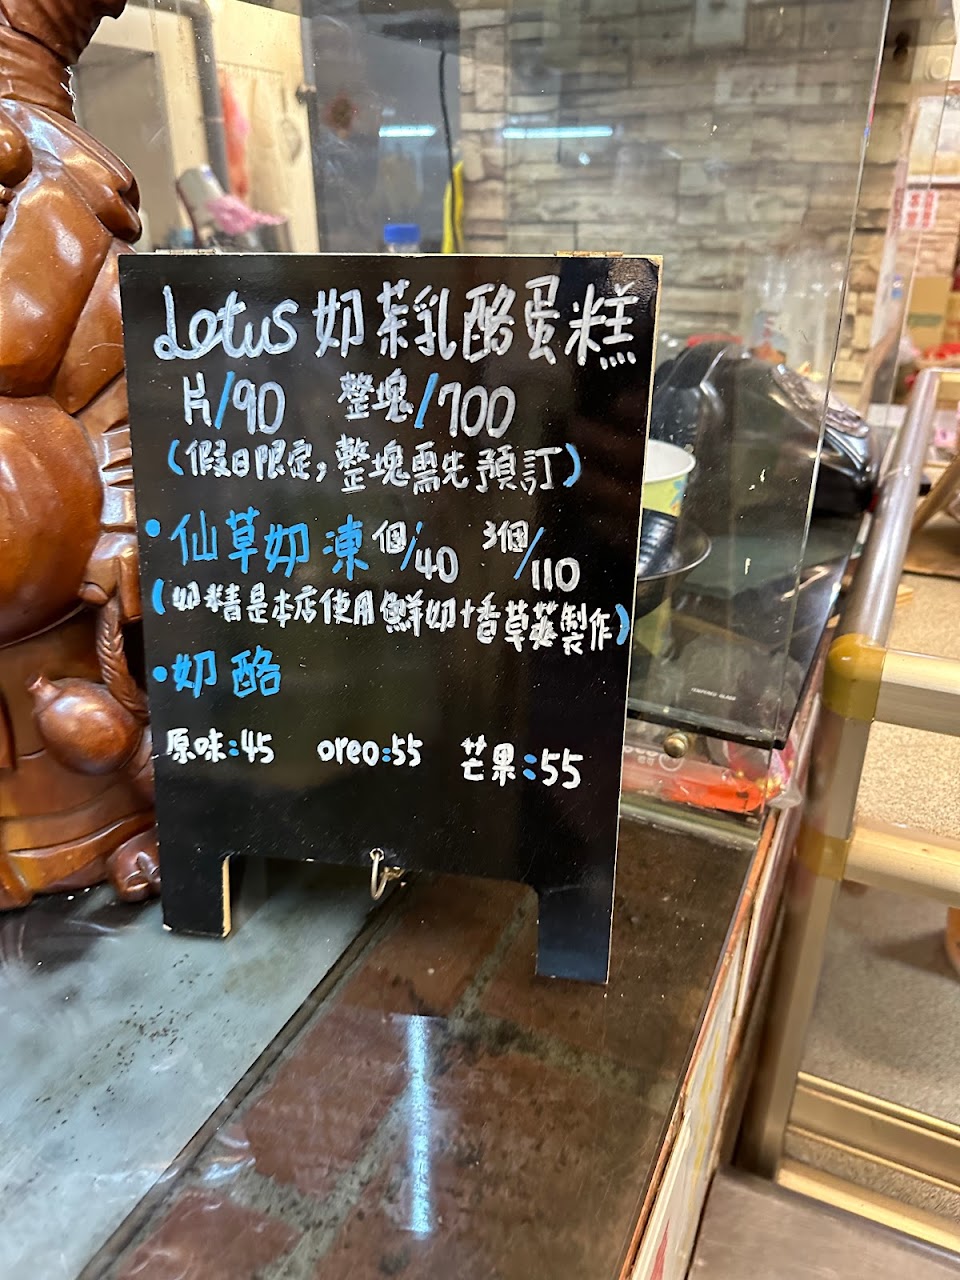 Lotus 奶茶乳酪蛋糕
片/90 整塊/700
(假日限定,整塊需先預訂)
•仙草奶凍 個/40 3個/110
(奶精是本店使用鮮奶+香草莢製作)
•奶酪
原味:45 oreo:55 芒果:55
TEMPERED GLASS